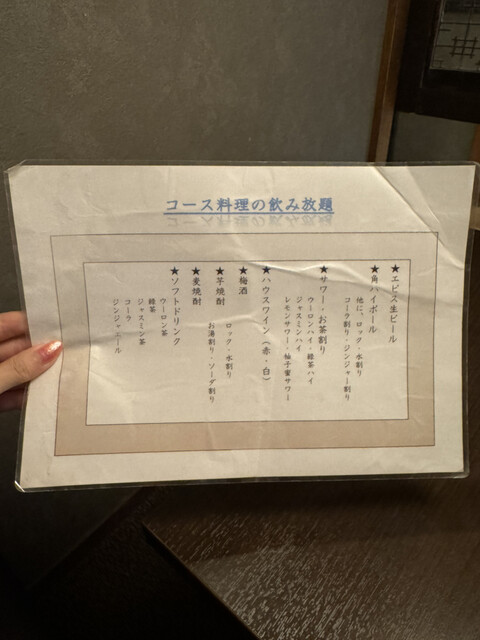 コース料理の飲み放題
★エビス生ビール
★角ハイボール
他に、ロック・水割り
コーラ割り・ジンジャー割り
★サワー・お茶割り
ウーロンハイ・緑茶ハイ
ジャスミンハイ
レモンサワー・柚子蜜サワー
★ハウスワイン（赤・白）
★梅酒
ロック・水割り
★芋焼酎
お湯割り・ソーダ割り
★麦焼酎
★ソフトドリンク
ウーロン茶
緑茶
ジャスミン茶
コーラ
ジンジャエール